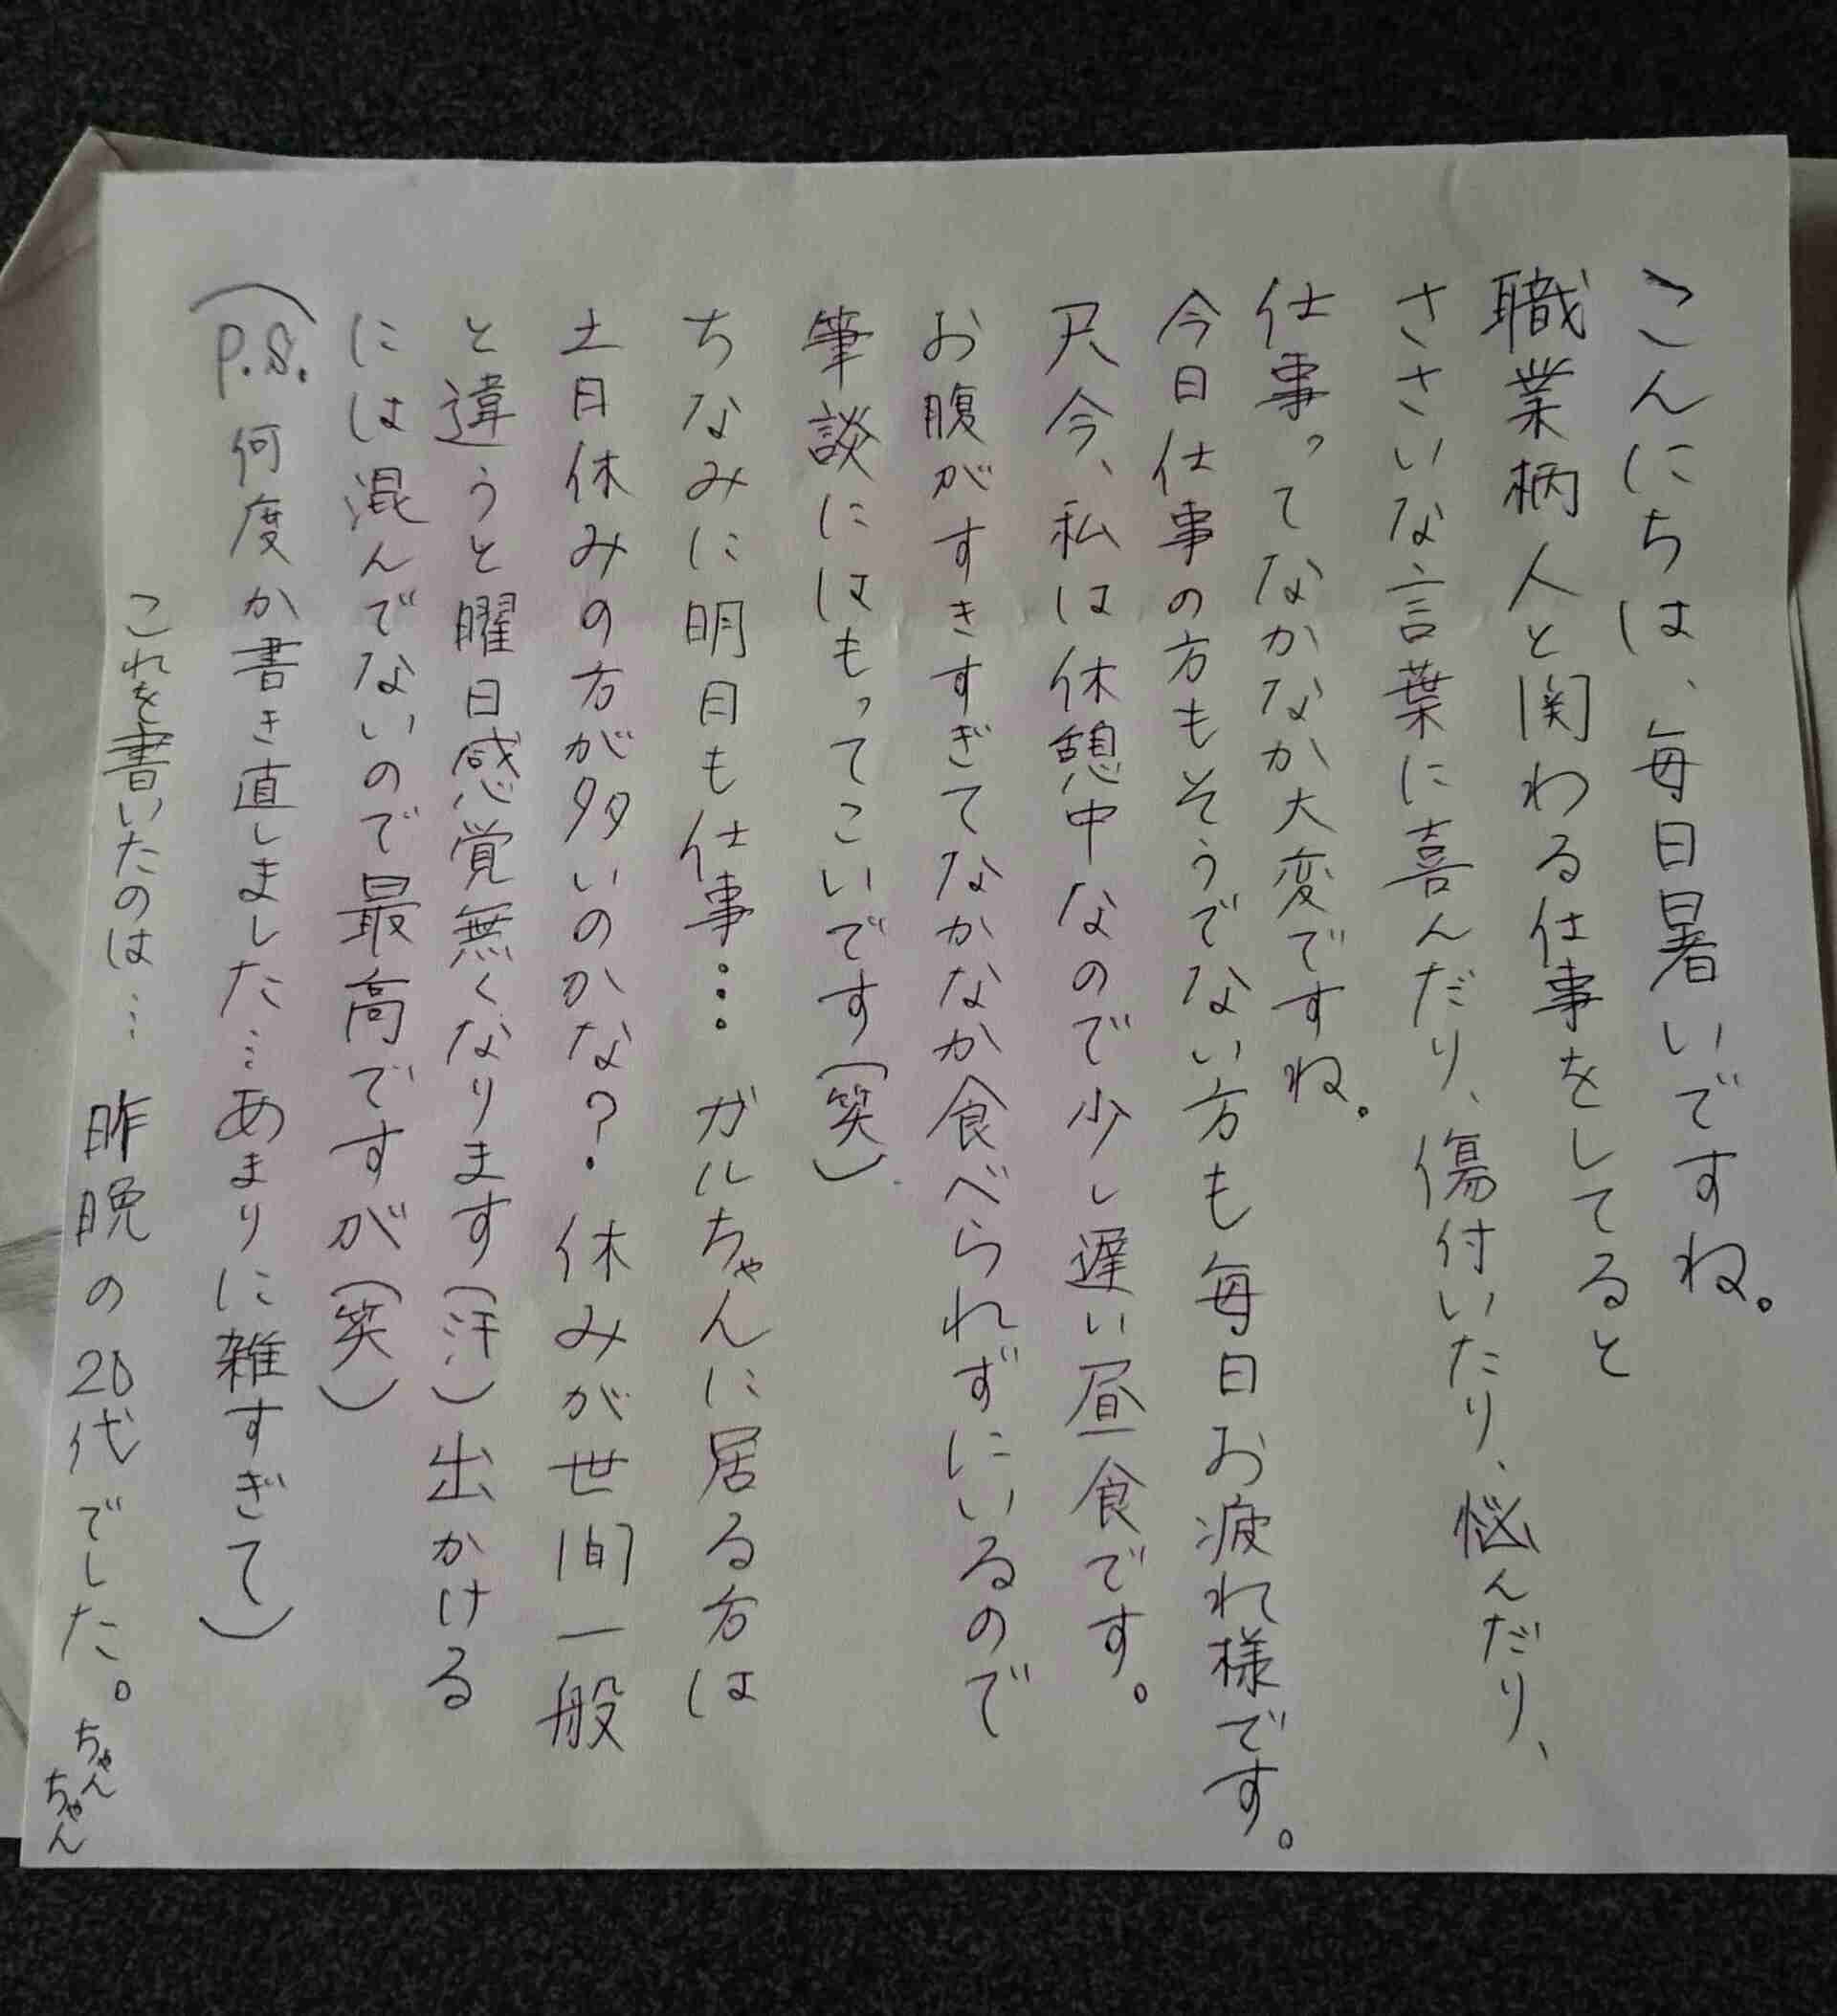 こんにちは、毎日暑いですね。
職業柄人と関わる仕事をしてると
ささいな言葉に喜んだり、傷付いたり、悩んだり、
仕事ってなかなか大変ですね。
今日仕事の方もそうでない方も毎日お疲れ様です。
只今、私は休憩中なので少し遅い昼食です。
お腹がすきすぎてなかなか食べられずにいるので
筆談にはもってこいです(笑)
ちなみに明日も仕事… ガルちゃんに居る方は
土日休みの方が多いのかな?休みが世間一般
と違うと曜日感覚無くなります(汗)出かける
には混んでないので最高ですが(笑)
(P.S.何度か書き直しました…あまりに雑すぎて)
これを書いたのは… 昨晩の20代でした。
ちゃん
ちゃん